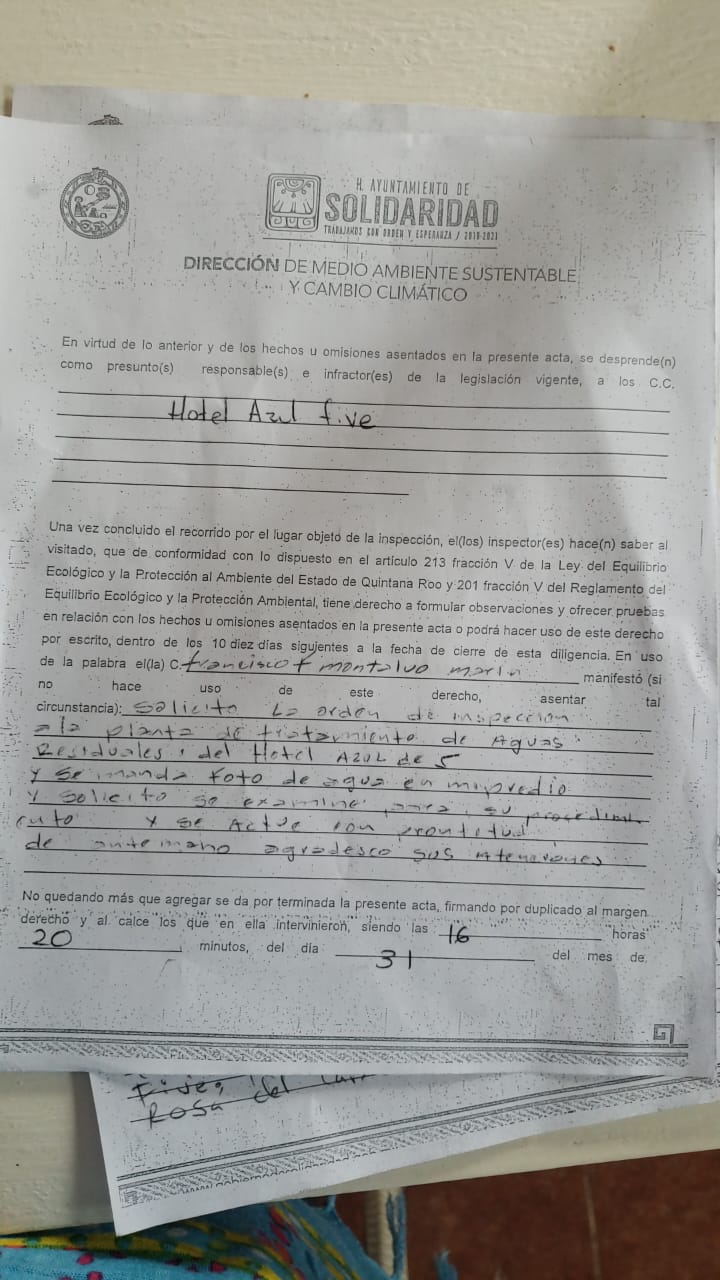 H. AYUNTAMIENTO DE
SOLIDARIDAD
TRABAJAMOS CON ORDEN Y ESPERANZA / 2018-2021
DIRECCIÓN DE MEDIO AMBIENTE SUSTENTABLE
Y CAMBIO CLIMÁTICO
En virtud de lo anterior y de los hechos u omisiones asentados en la presente acta, se desprende(n)
como presunto(s) responsable(s) e infractor(es) de la legislación vigente, a los C.C.
Hotel Azul five
Una vez concluido el recorrido por el lugar objeto de la inspección, el(los) inspector(es) hace(n) saber al
visitado, que de conformidad con lo dispuesto en el artículo 213 fracción V de la Ley del Equilibrio
Ecológico y la Protección al Ambiente del Estado de Quintana Roo y 201 fracción V del Reglamento del
Equilibrio Ecológico y la Protección Ambiental, tiene derecho a formular observaciones y ofrecer pruebas
en relación con los hechos u omisiones asentados en la presente acta o podrá hacer uso de este derecho
por escrito, dentro de los 10 diez días siguientes a la fecha de cierre de esta diligencia. En uso
de la palabra el(la) C. francisco f montalvo marin manifestó (si
no hace uso de este derecho, asentar tal
circunstancia): Solicito La orden de inspeccion
a la planta de tratamiento de Aguas
Residuales, del Hotel AZUL de 5
y se manda Foto de agua en mi predio
y solicito se examine para su procedimi
ento y se Actue con prontitud
de antemano agradesco sus Atenciones
No quedando más que agregar se da por terminada la presente acta, firmando por duplicado al margen
derecho y al calce los que en ella intervinieron, siendo las 16 horas
20 minutos, del día 31 del mes de
Rosa del